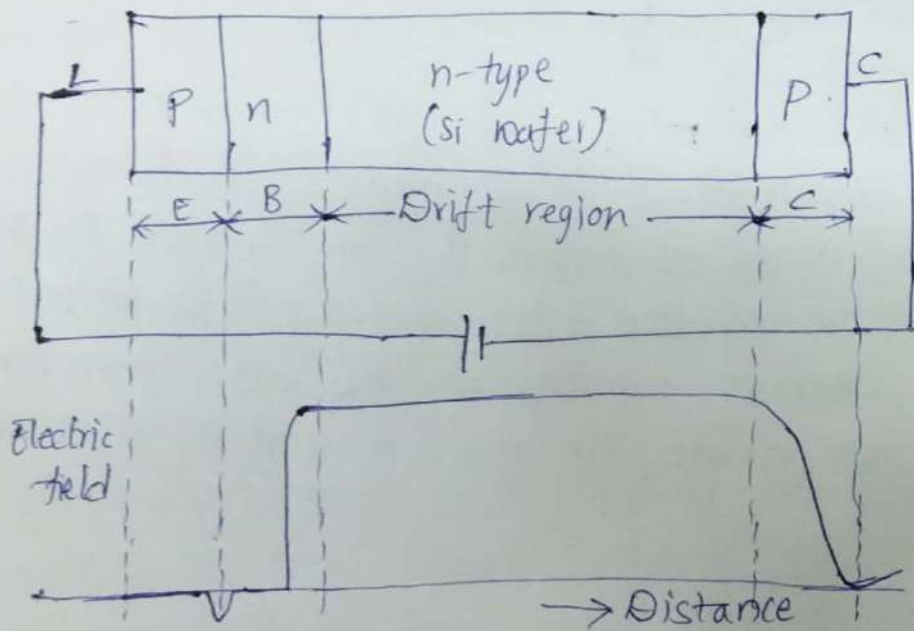 L P n n-type P C
(si wafer)
E B Drift region C
Electric
field
→ Distance